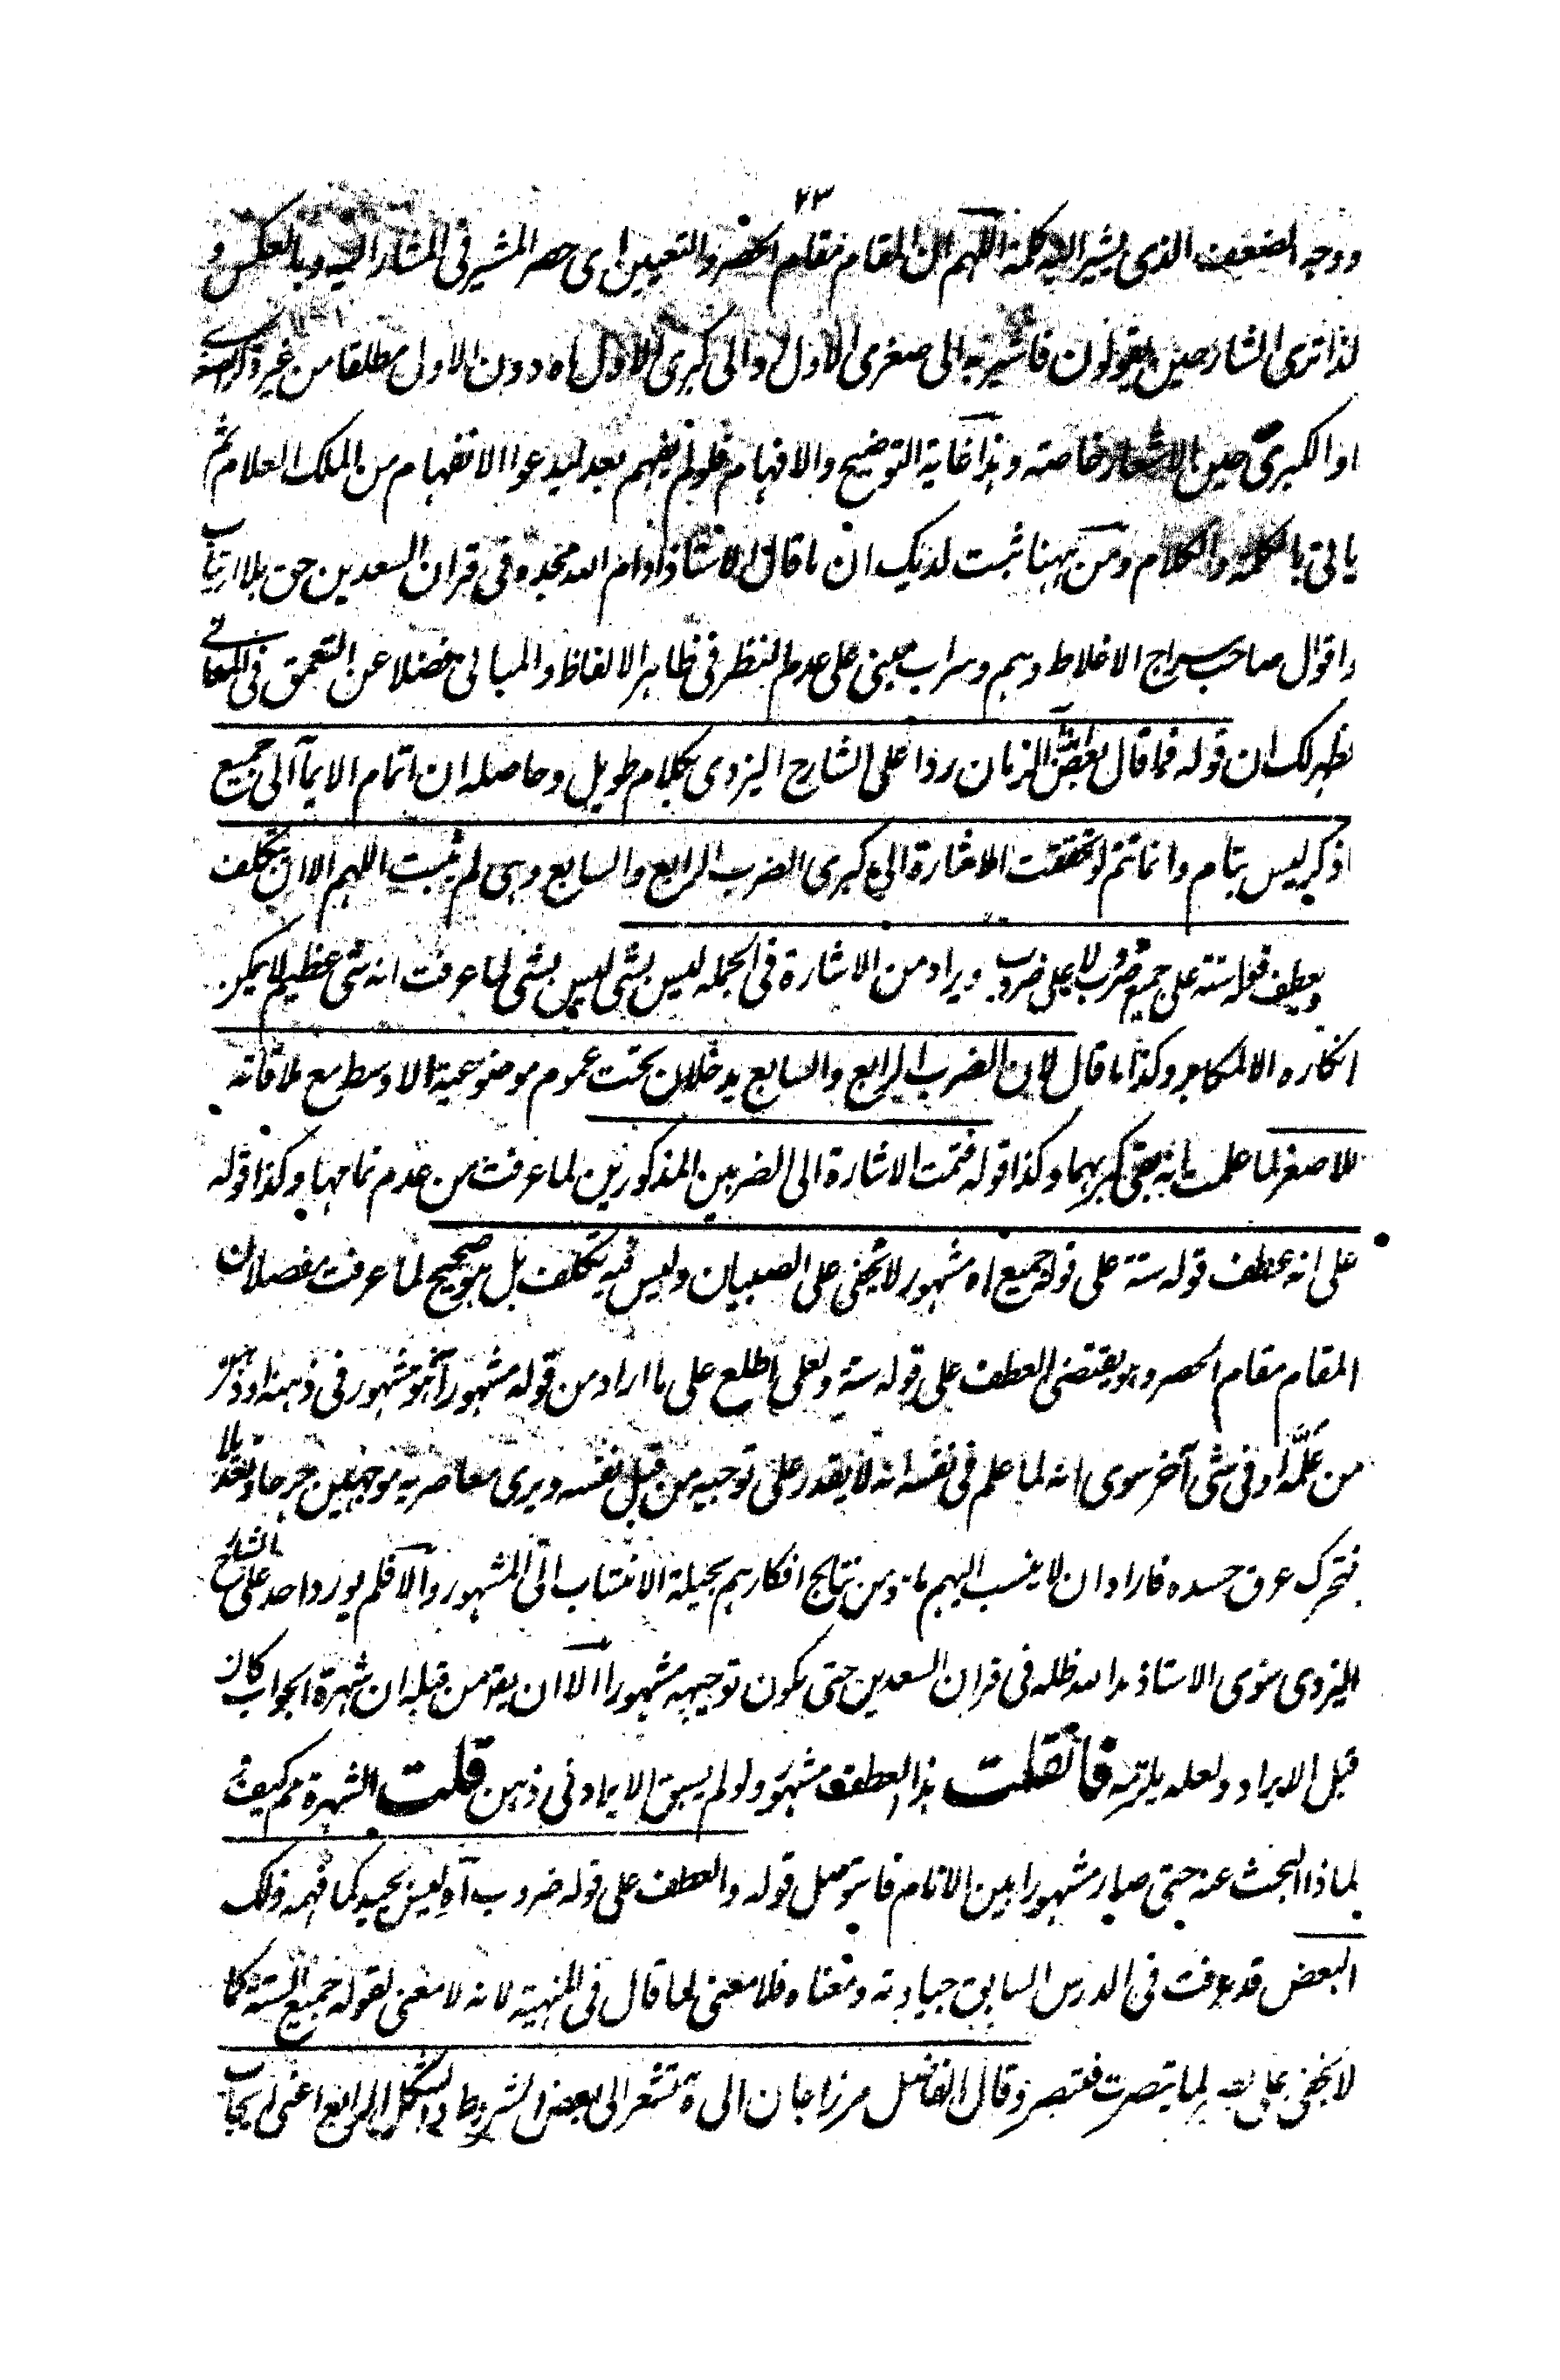 ٢٣
ووجه الضعيف الذي يشير اليه كلمة اللهم ان المقام مقام الحصر والتعيين اى حصر المشير فى المشار اليه وبالعكس و
لذا ترى الشارحين يقولون فاشير به الى صغرى الاول والى كبرى الاول اه دون الاول مطلقا من غير ذكر الصغرى
او الكبرى حين الاشعار خاصته وهذا غاية التوضيح والافهام فلو لم يفهم بعد ليدعوا الانفهام من الملك العلام ثم
ياتى بالكلمة والكلام ومن ههنا ثبت لديك ان ما قال الاستاذ ادام الله مجده فى قران السعدين حق بلا ارتياب
واقوال صاحب سراج الاغلاط وهم وسراب مبنى على عدم النظر فى ظاهر الالفاظ والمبانى فضلا عن التعمق فى المعانى
يظهر لك ان قوله فما قال بعض الزمان ردا على الشارح اليزدى بكلام طويل وحاصله ان اتمام الايماء الى جميع
اذكر ليس بتام وانما تتم لو تحققت الاشارة الى كبرى الضرب الرابع والسابع وهى لم يثبت اللهم الا ان يتكلف
ويعطف قوله ستة على جميع ضروب لا على ضروب ويراد من الاشارة فى الجمله ليس بشى ليس بشى لما عرفت انه شى عظيم لا يمكن
انكاره الا لمكابر وكذا ما قال لان الضرب الرابع والسابع يدخلان تحت عموم موضوعية الاوسط مع ملاقاته
للاصغر لما علمت بانه بقى كبريهما وكذا قوله فتمت الاشارة الى الضربين المذكورين لما عرفت من عدم تمامها وكذا قوله
على انه عطف قوله ستة على قوله جميع اه مشهور لا يخفى على الصبيان وليس فيه تكلف بل هو صحيح لما عرفت مفصلا ان
المقام مقام الحصر وهو يقتضى العطف على قوله ستة ولعلى اطلع على ما اراد من قوله مشهور أهو مشهور فى ذهنه او ذهن
من علمه او فى شى آخر سوى انه لما علم فى نفسه انه لا يقدر على توجيه من قبل نفسه ويرى معاصريه موجهين جرحا وتعديلا
فتحرك عرق حسده فاراد ان لا ينسب اليهم ما هو من نتايج افكارهم بحيلة الانتساب الى المشهور والا فلم يورد احد على الشارح
اليزدى سوى الاستاذ مد الله ظله فى قران السعدين حتى يكون توجيهه مشهورا الا ان يقو من قبله ان شهرة الجواب كان
قبل الايراد ولعله يلتزمه فان قلت هذا العطف مشهور ولو لم يسبق الايراد فى ذهن قلت الشهرة ثم كيف
لما ذا البحث عنه حتى صار مشهورا بين الانام فاستوصل قوله والعطف على قوله ضروب آه ليس بجيد كما فهمه ذلك
البعض قد عرفت فى الدرس السابق جيادته ومعناه فلا معنى لما قال فى المنهية لانه لا معنى لقوله جميع الستة كما
لا يخفى على لما تبصرت فتبصر وقال الفاضل مرزا جان الى ة تشعر الى بعض الشرايط فى الشكل الرابع اعنى ايجاب